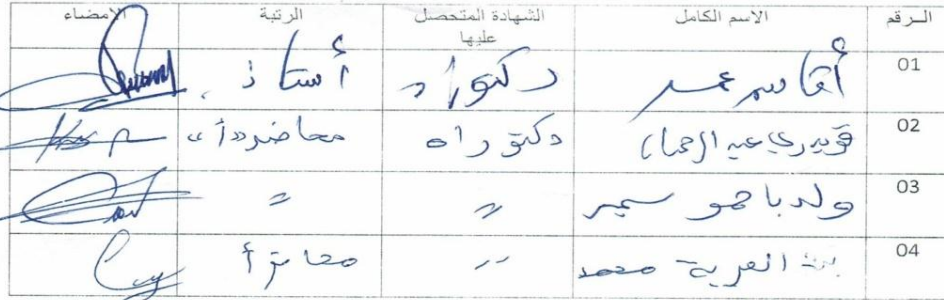 الـرقم الاسم الكامل الشهادة المتحصل عليها الرتبة الامضاء
01 أقاسم عمر دكتوراه أستاذ
02 قويدري عبد الرحمان دكتوراه محاضر "أ"
03 ولد باحمو سمير " "
04 بن العرية محمد " محاضر أ